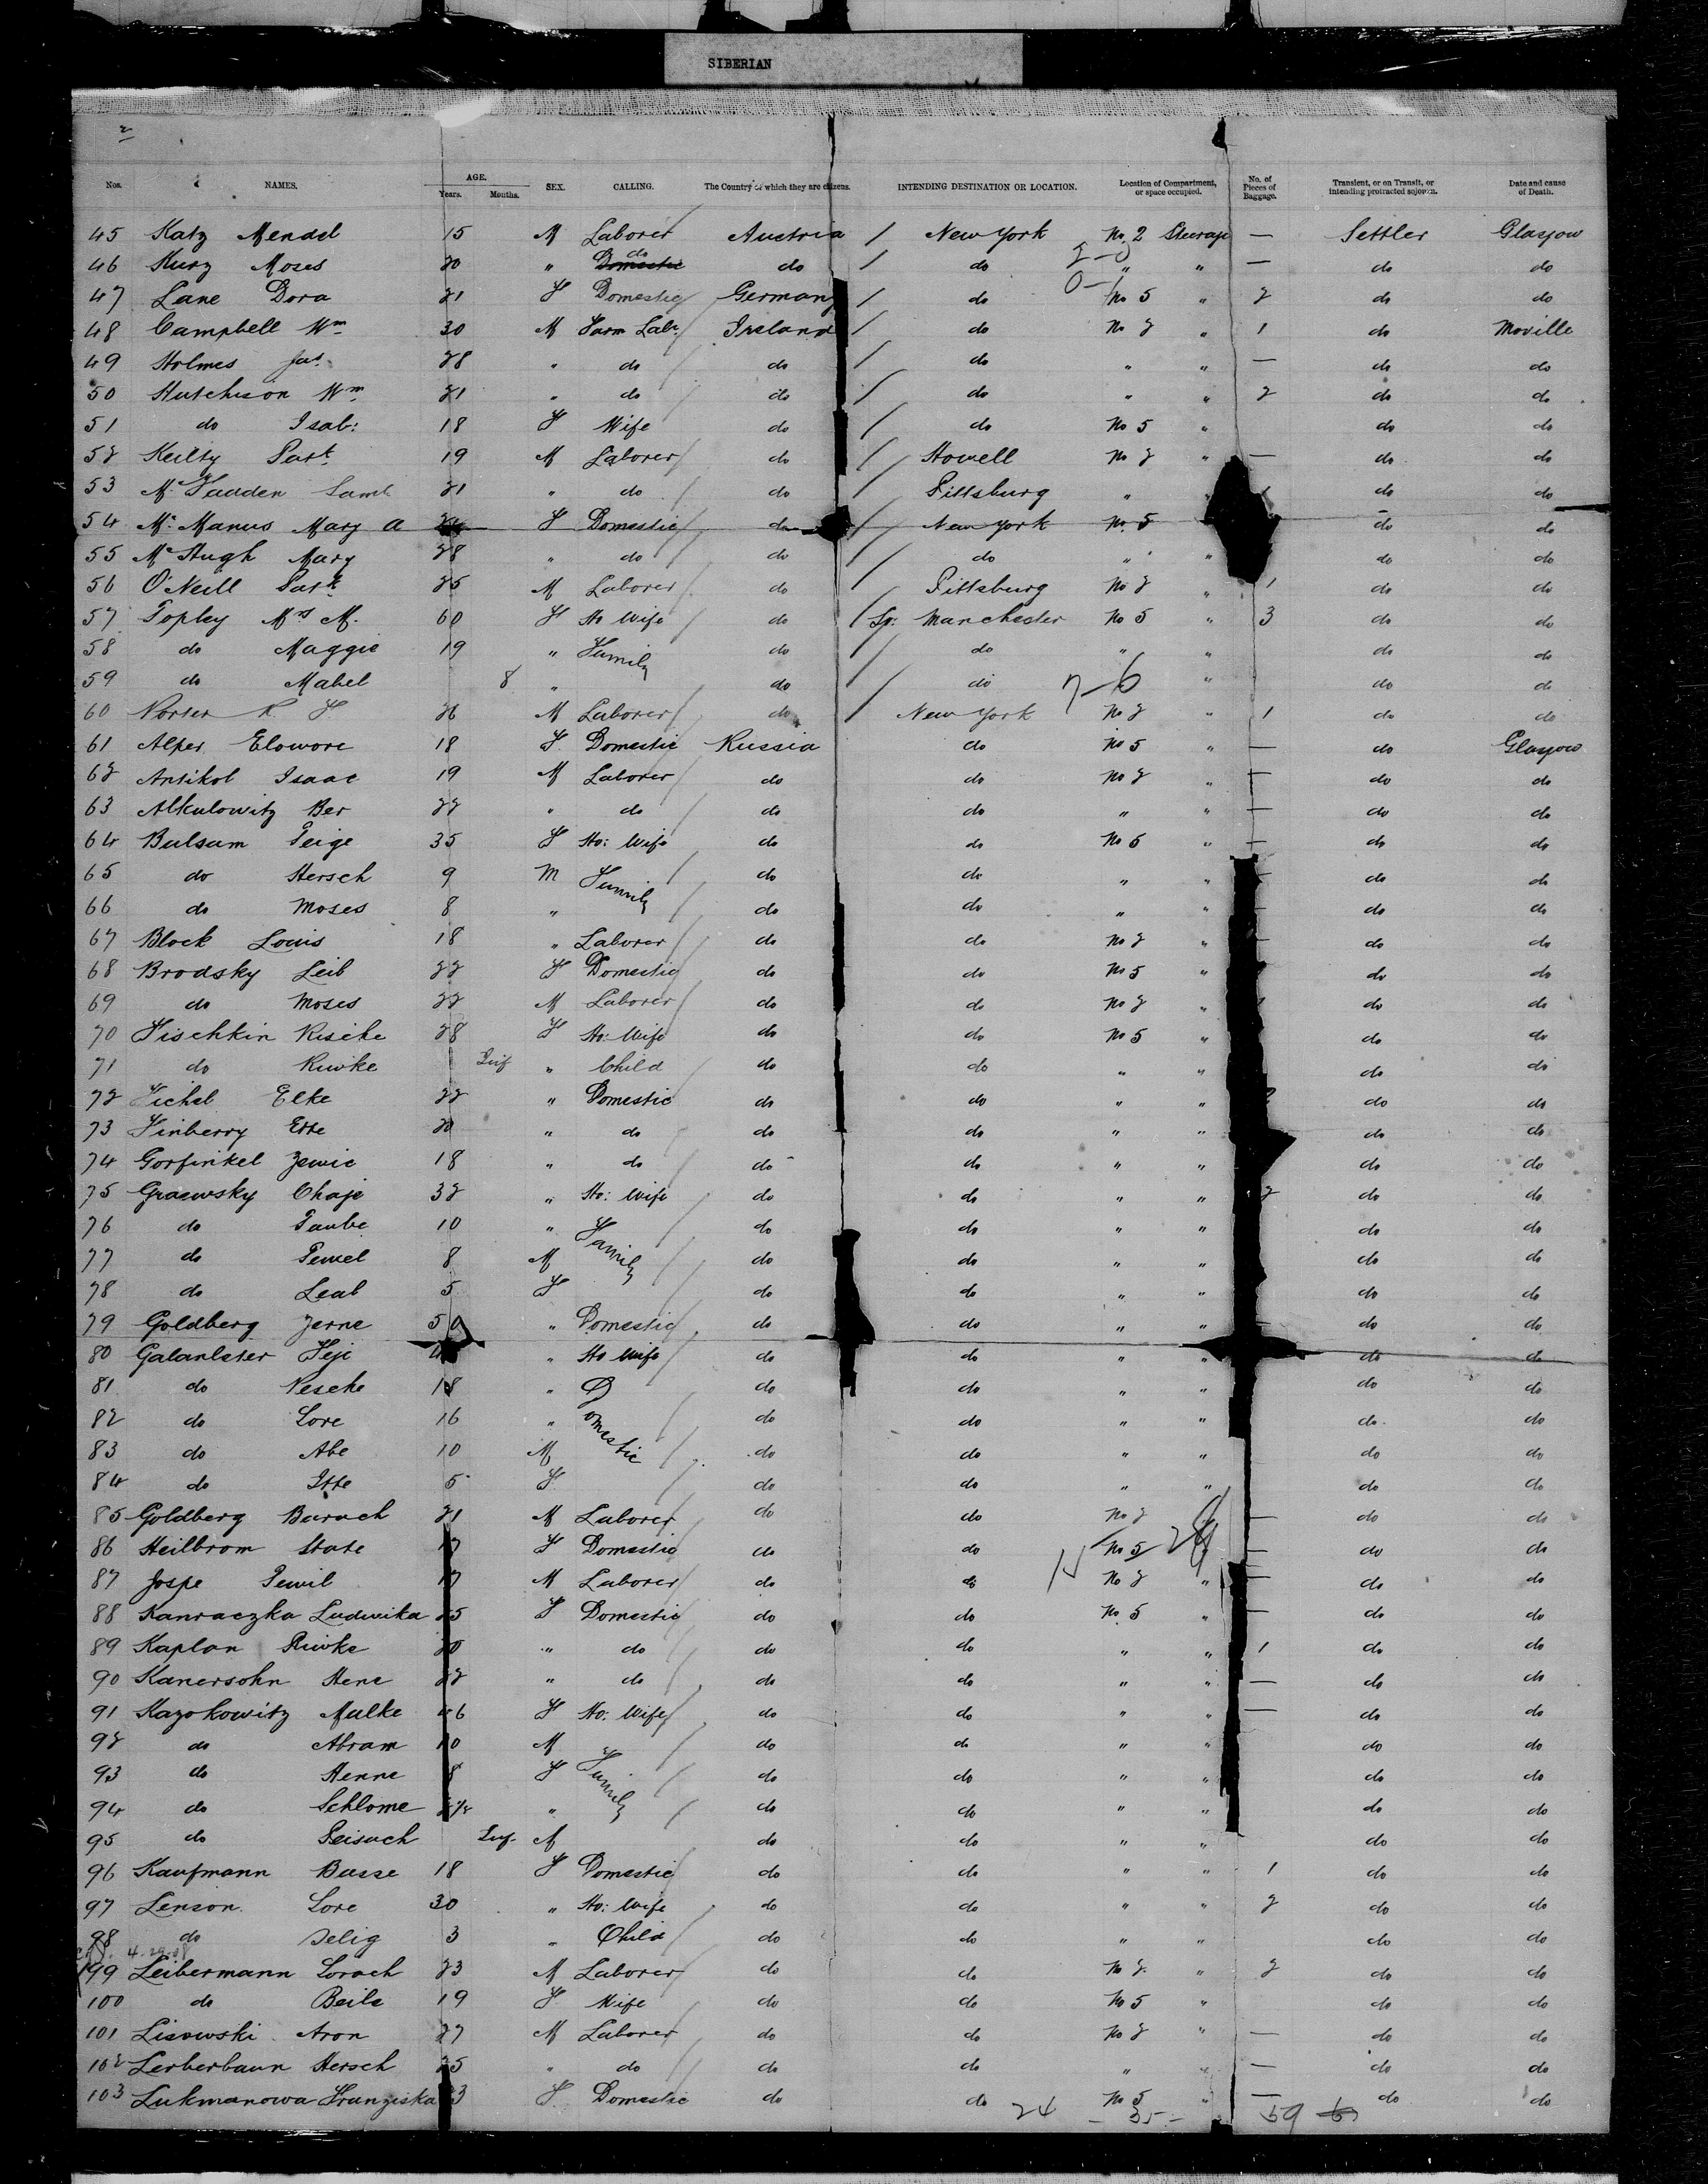 SIBERIAN
2
Nos. NAMES. AGE. Years. Months. SEX. CALLING. The Country of which they are citizens. INTENDING DESTINATION OR LOCATION. Location of Compartment, or space occupied. No. of Pieces of Baggage. Transient, or on Transit, or intending protracted sojourn. Date and cause of Death.
45 Katz Mendel 15 M Laborer Austria / New York No. 2 Steerage — Settler Glasgow
46 Kurz Moses 20 " do do / do " " — do do
47 Lane Dora 21 F Domestic Germany / do No 5 " 2 do do
48 Campbell Wm 30 M Farm Labr Ireland / do No 2 " 1 do Moville
49 Holmes Jas. 28 " do do / do " " — do do
50 Hutchison Wm 21 " do do / do " " 2 do do
51 do Isab: 18 F Wife do / do No 5 " do do
52 Keilty Patk 19 M Laborer do / Howell No 2 " — do do
53 McFadden Saml 21 " do do Pittsburg " do do
54 McManus Mary A F Domestic do / New York No. 5 do do
55 McHugh Mary 28 " do do / do " " do do
56 O'Neill Patk 25 M Laborer do / Pittsburg No 2 " 1 do do
57 Topley Mrs M. 60 F Ho Wife do / So: Manchester No 5 " 3 do do
58 do Maggie 19 " Family do / do " " do do
59 do Mabel 8 " do / do 7-6 " do do
60 Porter R. F 26 M Laborer do / New York No 2 " 1 do do
61 Alper Elowore 18 F Domestic Russia do No 5 " — do Glasgow
62 Antikol Isaac 19 M Laborer do do No 2 " — do do
63 Alkulowitz Ber 22 " do do do " " — do do
64 Balsam Feige 35 F Ho: Wife do do No 5 " — do do
65 do Hersch 9 M Family do do " " do do
66 do Moses 8 " do do " " do do
67 Block Louis 18 " Laborer do do No 2 " do do
68 Brodsky Leib 22 F Domestic do do No 5 " do do
69 do Moses 22 M Laborer do do No 2 " do do
70 Fischkin Rische 28 F Ho: Wife do do No 5 " do do
71 do Riwke Inf " Child do do " " do do
72 Fichel Elke 22 " Domestic do do " " do do
73 Finberry Ette 20 " do do do " " do do
74 Gorfinkel Zewie 18 " do do do " " do do
75 Graewsky Chaje 32 " Ho: Wife do do " " 2 do do
76 do Taube 10 " Family do do " " do do
77 do Tewel 8 M do do " " do do
78 do Leab 5 F do do " " do do
79 Goldberg Zerne 50 " Domestic do do " " do do
80 Galantster Feje " Ho Wife do do " " do do
81 do Nesche 18 " Domestic do do " " do do
82 do Sore 16 " do do " " do do
83 do Abe 10 M do do " " do do
84 do Itte 5 F do do " " do do
85 Goldberg Baruch 21 M Laborer do do No 2 — do do
86 Heilbrom State F Domestic do do No 5 — do do
87 Jospe Tewil M Laborer do do No 2 " — do do
88 Kanraczka Ludwika 25 F Domestic do do No 5 " — do do
89 Kaplan Riwke 20 " do do do " " 1 do do
90 Kanersohn Hene 22 " do do do " " — do do
91 Kazokowitz Malke 46 F Ho: Wife do do " " — do do
92 do Abram 10 M Family do do " " do do
93 do Henne 8 F do do " " do do
94 do Schlome " do do " " do do
95 do Peisach Inf. M do do " " do do
96 Kaufmann Basse 18 F Domestic do do " " 1 do do
97 Lenson Sore 30 " Ho: Wife do do " " 2 do do
98 do Selig 3 " Child do do " " do do
99 Leibermann Sorach 23 M Laborer do do No 2 " 2 do do
100 do Beile 19 F Wife do do No 5 " do do
101 Lisowski Aron 27 M Laborer do do No 2 " — do do
102 Lerberbaun Hersch 25 " do do do " " — do do
103 Lukmanowa Franziska F Domestic do do No 5 " — do do
24 - 35 - 59